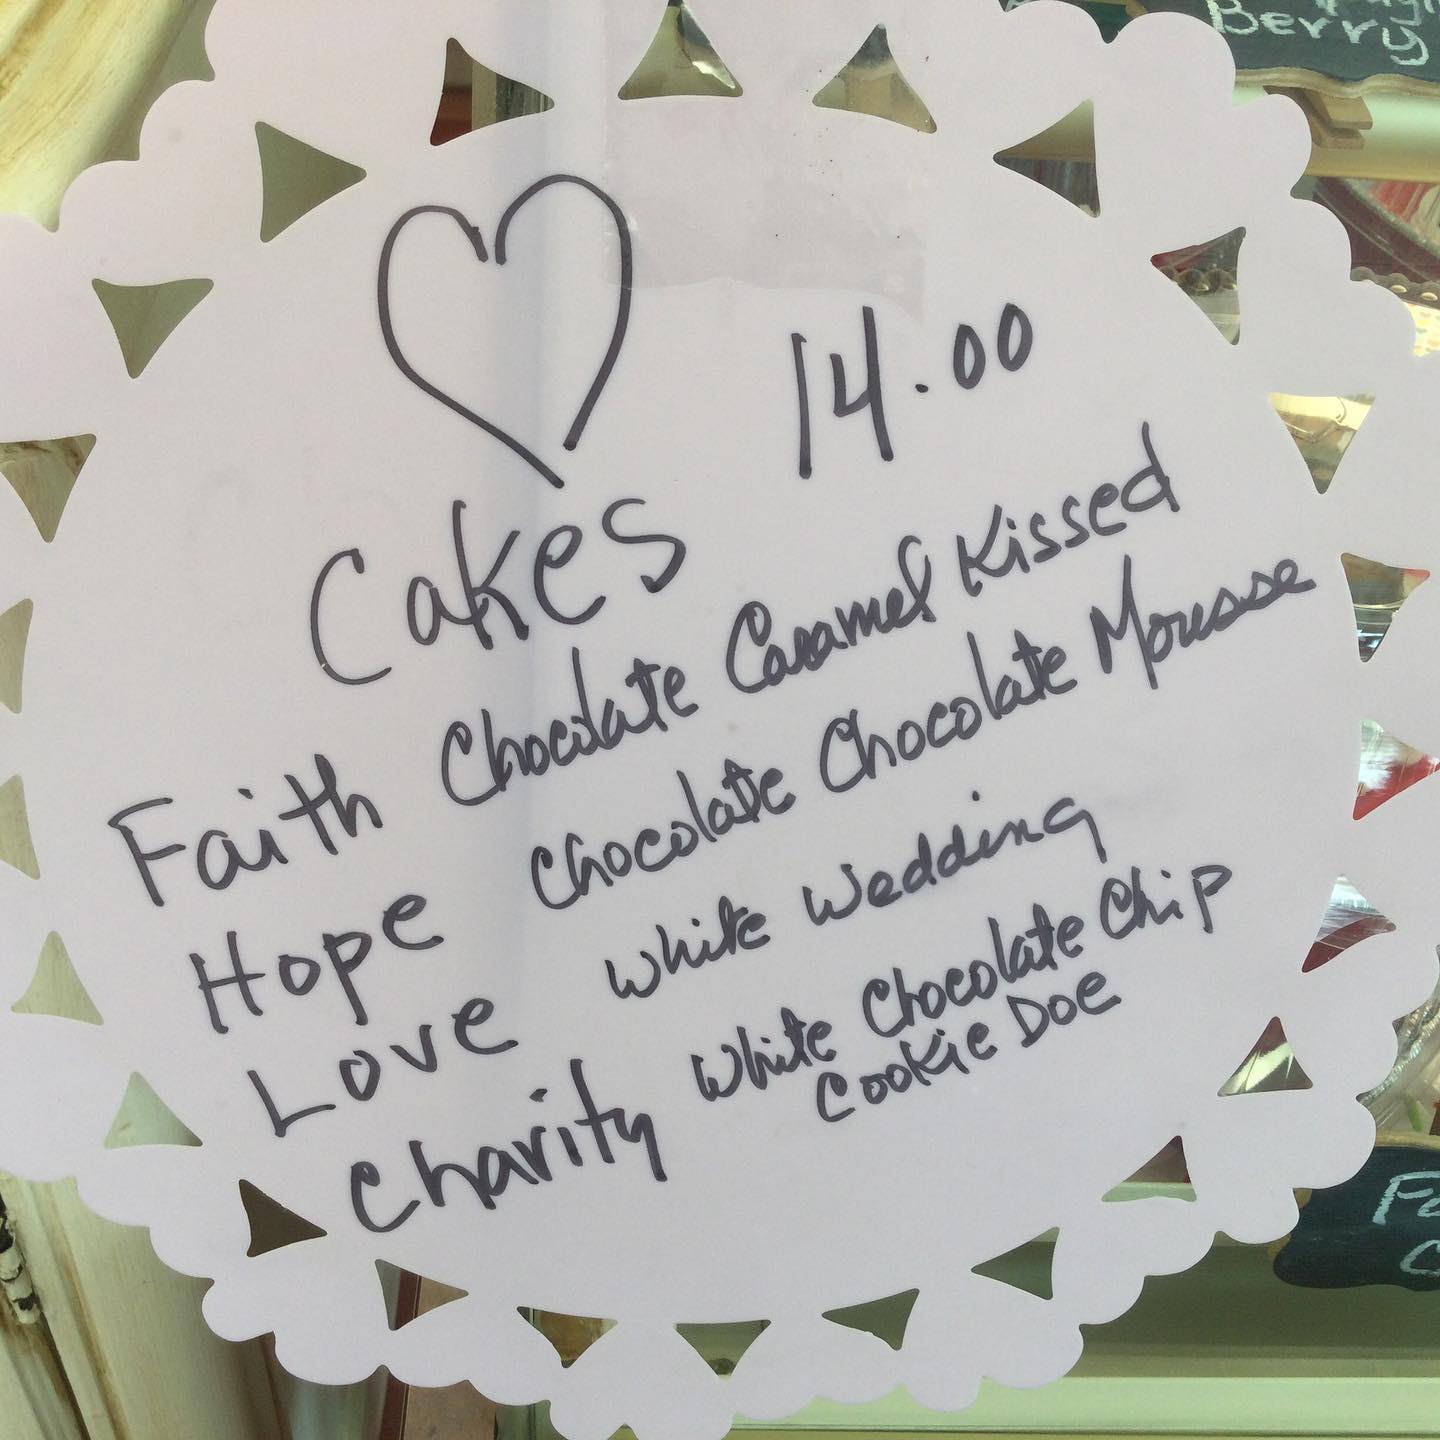 Berry
14.00
Cakes
Faith Chocolate Caramel Kissed
Hope Chocolate Chocolate Mousse
Love White Wedding
Charity White Chocolate Chip
Cookie Doe